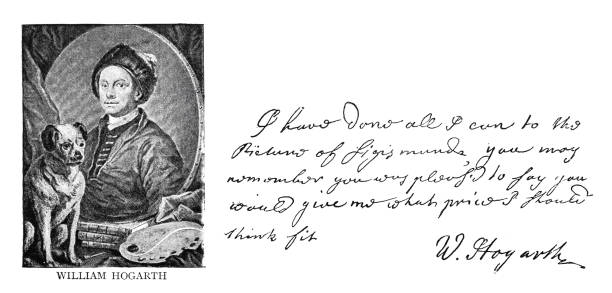 WILLIAM HOGARTH
I have done all I can to the
Picture of Sigismunda, you may
remember you was pleas'd to say you
would give me what price I should
think fit
W. Hogarth